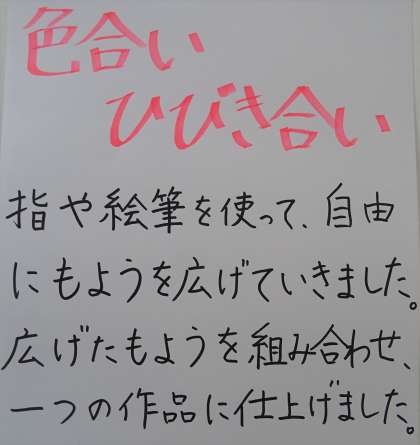 色合い
ひびき合い
指や絵筆を使って、自由
にもようを広げていきました。
広げたもようを組み合わせ、
一つの作品に仕上げました。